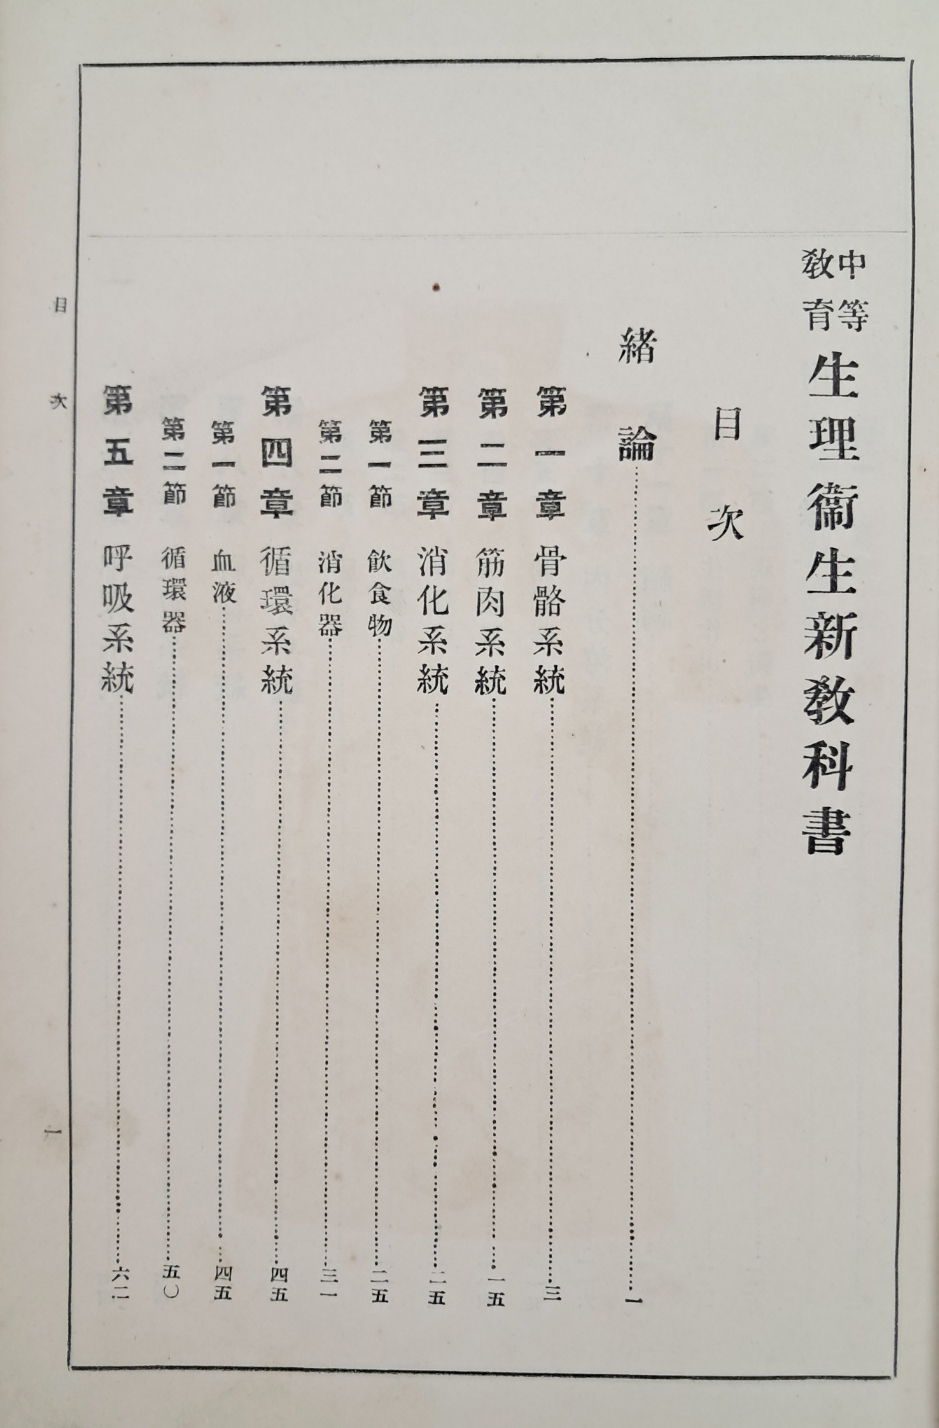 中等教育生理衞生新教科書
目次
緒論…一
第一章 骨骼系統…三
第二章 筋肉系統…一五
第三章 消化系統…二五
第一節 飮食物…二五
第二節 消化器…三一
第四章 循環系統…四五
第一節 血液…四五
第二節 循環器…五〇
第五章 呼吸系統…六二
目次
一